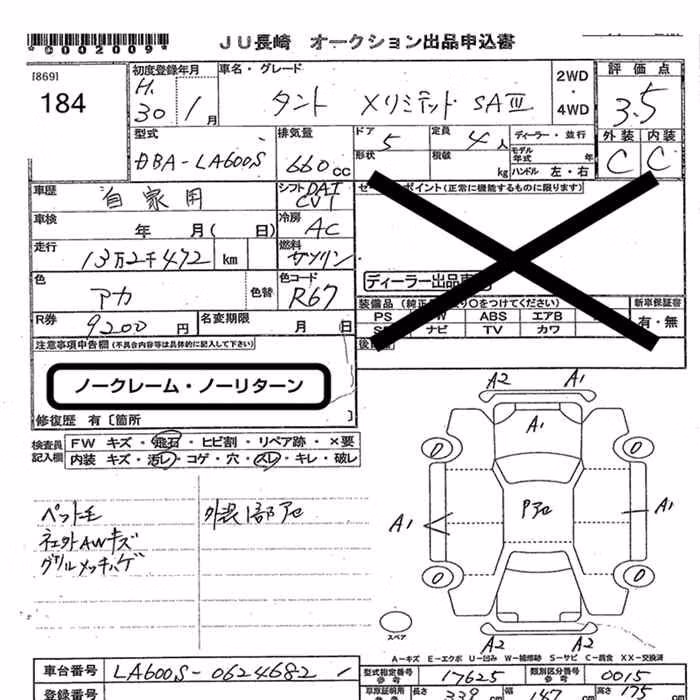 *C002009*
JU長崎 オークション出品申込書
[869]
184
初度登録年月
H.30年 1月
車名・グレード
タント XリミテッドSAIII
2WD
・
4WD
評価点
3.5
型式
DBA-LA600S
排気量
660cc
ドア 5
形状
定員 4人
積載 kg
ディーラー・並行
モデル年式 年
ハンドル 左・右
外装 内装
C C
車歴 自家用
シフト DAT CVT
車検 年 月( 日)
冷房 AC
走行 13万2千472 km
燃料 ガソリン
色 アカ 色替
色コード R67
R券 9200円
名変期限 月 日
ポイント(正常に機能するものに限ります)
ディーラー出品車
装備品
○をつけてください)
新車保証書
有・無
PS ABS エアB
ナビ TV カワ
注意事項申告欄(不具合内容等は具体的に記入して下さい)
ノークレーム・ノーリターン
修復歴 有〔箇所 〕
検査員記入欄
FW キズ・飛石・ヒビ割・リペア跡・×要
内装 キズ・汚レ・コゲ・穴・スレ・キレ・破レ
ペット毛 外装1部アセ
ネェクトAWキズ
グリルメッキハゲ
A2 A1
A1
Pアセ
A1 A1
A2
A2
スペア
A-キズ E-エクボ U-凹み W-補修跡 S-サビ C-腐食 XX-交換済
車台番号 LA600S-0624682
型式指定番号 参考 17625
類別区分番号 参考 0015
登録番号
長さ 339 cm
幅 147 cm
高さ 175 cm